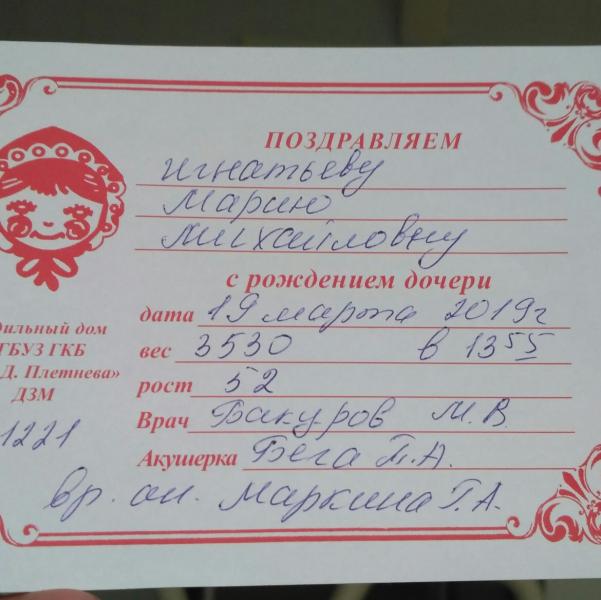 ПОЗДРАВЛЯЕМ
Игнатьеву
Марину
Михайловну
с рождением дочери
дата 19 марта 2019г
вес 3530 в 13 55
рост 52
Врач Бакуров М.В.
Акушерка Бега Т.А.
вр. ан. Маркина Г.А.
дильный дом
ГБУЗ ГКБ
Д. Плетнева»
ДЗМ
1221